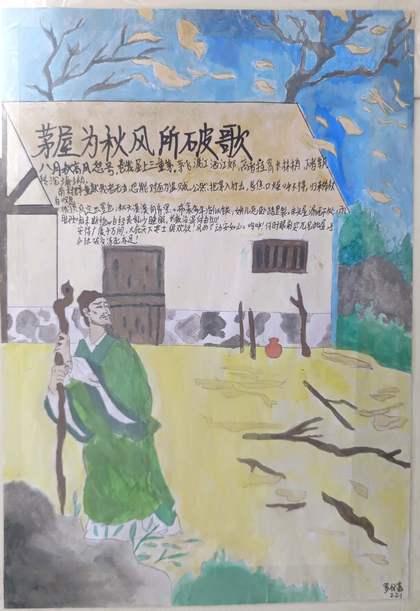 茅屋为秋风所破歌
八月秋高风怒号,卷我屋上三重茅。茅飞渡江洒江郊,高者挂罥长林梢,下者飘
转沉塘坳。
南村群童欺我老无力,忍能对面为盗贼。公然抱茅入竹去,唇焦口燥呼不得,归来倚杖
自叹息。
俄顷风定云墨色,秋天漠漠向昏黑。布衾多年冷似铁,娇儿恶卧踏里裂。床头屋漏无干处,雨
安得广厦千万间,大庇天下寒士俱欢颜!风雨不动安如山。呜呼!何时眼前突兀见此屋,吾
221